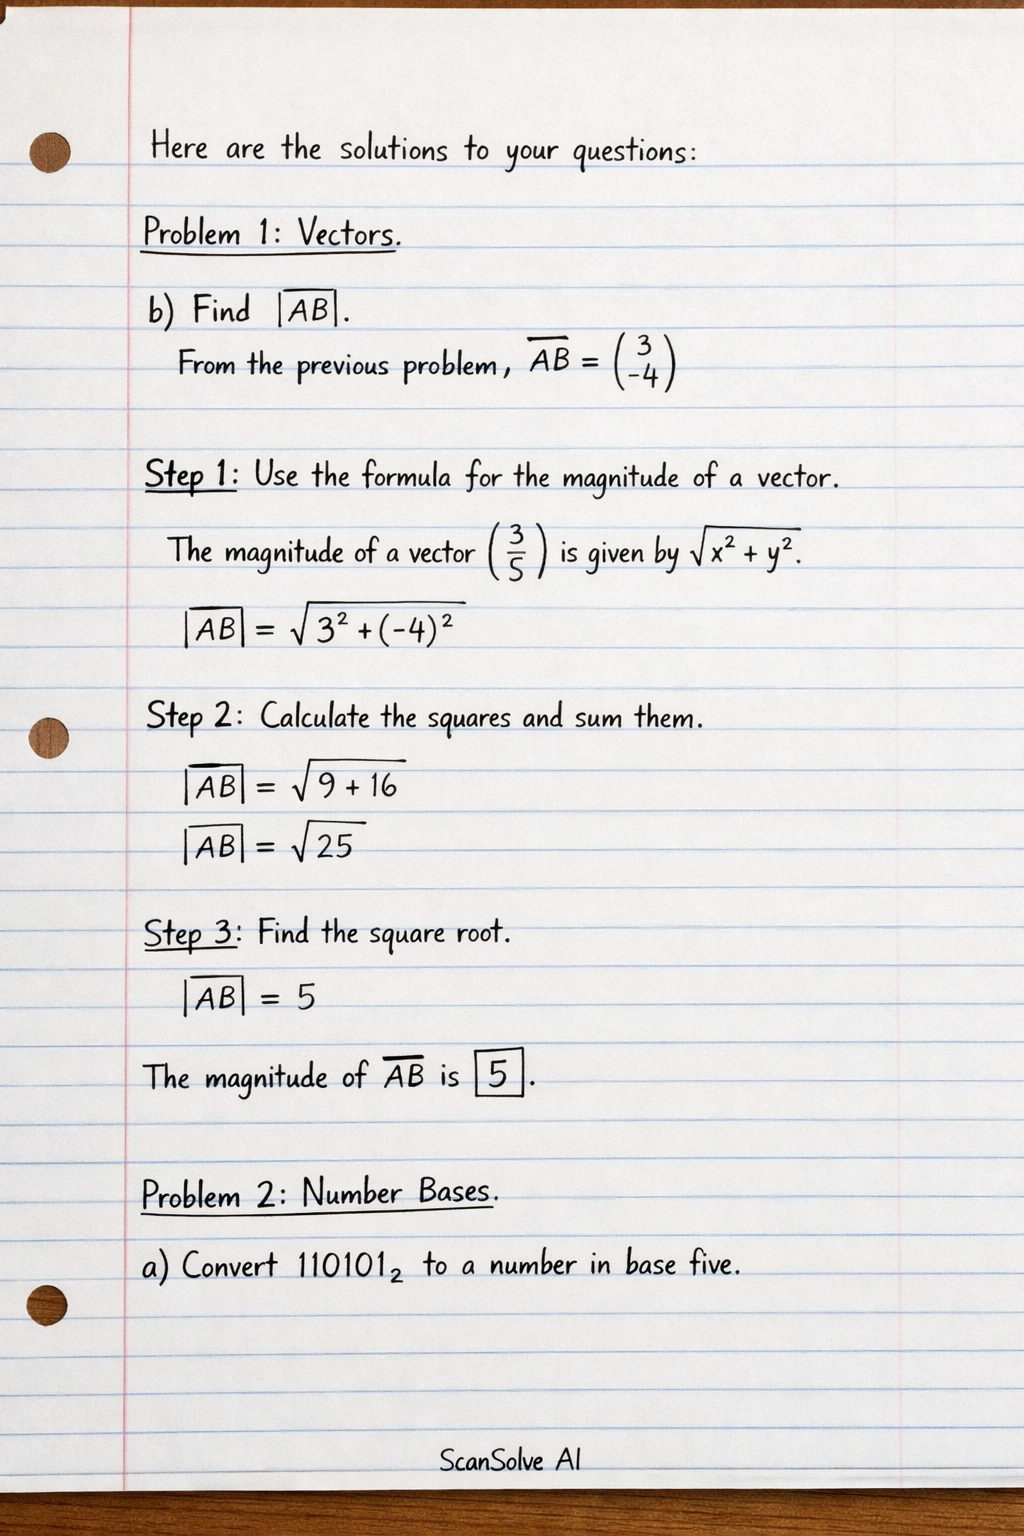 Here are the solutions to your questions:
Problem 1: Vectors.
b) Find |A̅B̅|.
From the previous problem, A̅B̅ = (3
-4)
Step 1: Use the formula for the magnitude of a vector.
The magnitude of a vector (3/5) is given by √(x² + y²).
|A̅B̅| = √(3² + (-4)²)
Step 2: Calculate the squares and sum them.
|A̅B̅| = √(9 + 16)
|A̅B̅| = √25
Step 3: Find the square root.
|A̅B̅| = 5
The magnitude of A̅B̅ is 5.
Problem 2: Number Bases.
a) Convert 110101₂ to a number in base five.
ScanSolve AI